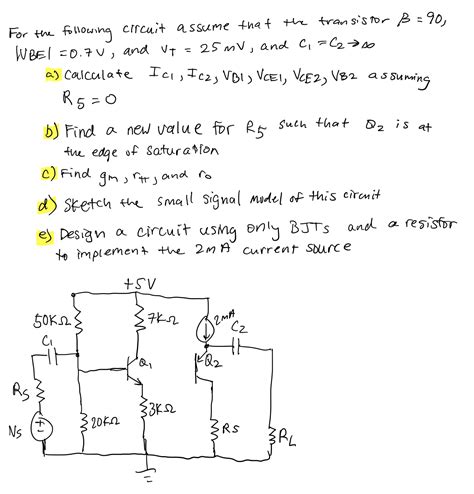 For the following circuit assume that the transistor β = 90,
|VBE| = 0.7V, and VT = 25mV, and C1 = C2 → ∞
a) Calculate IC1, IC2, VB1, VCE1, VCE2, VB2 assuming
R5 = 0
b) Find a new value for R5 such that Q2 is at
the edge of saturation
c) Find gm, rπ, and ro
d) Sketch the small signal model of this circuit
e) Design a circuit using only BJTs and a resistor
to implement the 2mA current source
+5V
50KΩ
7KΩ
2mA
C2
C1
Q1
Q2
RS
3KΩ
20KΩ
RS
RL
NS